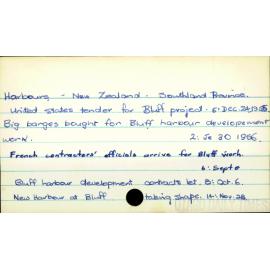 Harbours - New Zealand - Southland Province.
United States tender for Bluff project. 5: Dec. 24, 1955
Big barges bought for Bluff harbour developement
work. 2: Je 30 1956.
French contractors' officials arrive for Bluff work.
6: Sept 6
Bluff harbour development contracts let. 5: Oct. 6.
New Harbour at Bluff taking shape. 14: Nov. 28.